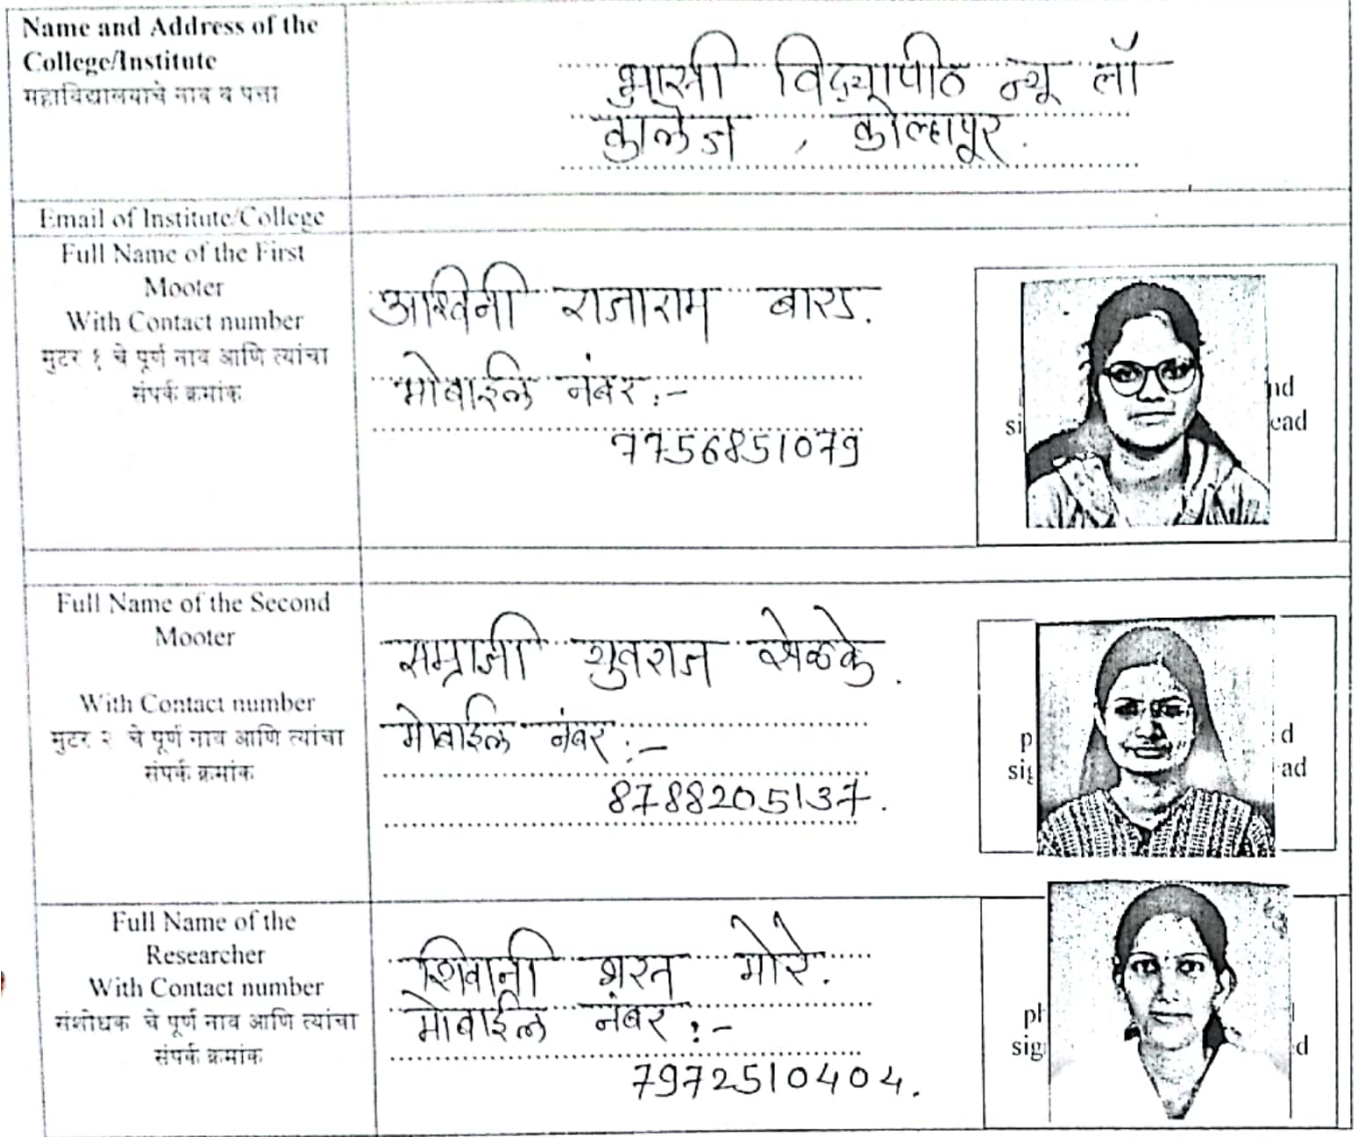 Name and Address of the
College/Institute
महाविद्यालयाचे नाव व पत्ता
विद्यापीठ न्यू लॉ
कॉलेज , कोल्हापूर.
Email of Institute/College
Full Name of the First
Mooter
With Contact number
मुटर १ चे पूर्ण नाव आणि त्यांचा
संपर्क क्रमांक
अश्विनी राजाराम बारड.
मोबाईल नंबर :-
7756851079
nd
si
ead
Full Name of the Second
Mooter
With Contact number
मुटर २ चे पूर्ण नाव आणि त्यांचा
संपर्क क्रमांक
सम्राज्ञी युवराज शेळके.
मोबाईल नंबर :-
8788205137.
p d
sig ad
Full Name of the
Researcher
With Contact number
संशोधक चे पूर्ण नाव आणि त्यांचा
संपर्क क्रमांक
शिवानी शरत मोरे.
मोबाईल नंबर :-
7972510404.
ph
sig d